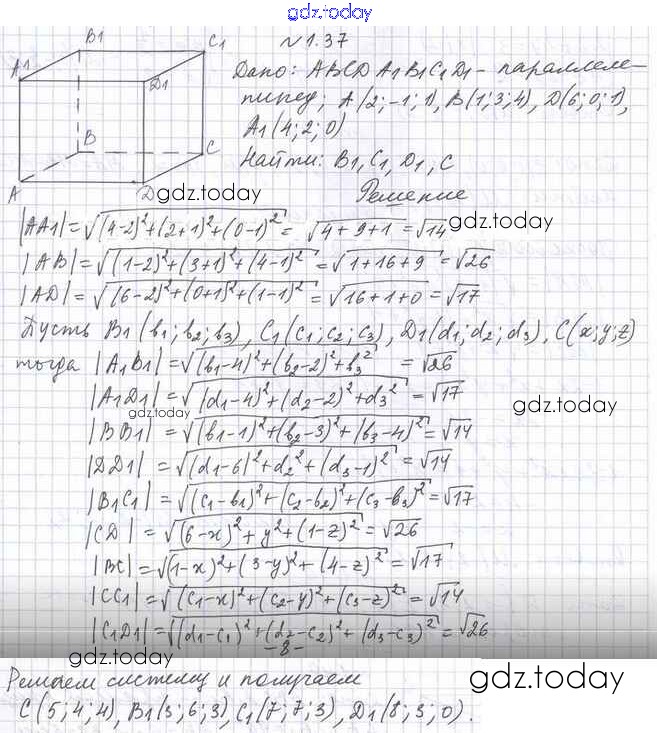 gdz.today
B1
C1
A1
D1
B
C
A
D
№1.37
Дано: ABCDA1B1C1D1 - параллеле-
пипед; A(2;-1;1), B(1;3;4), D(6;0;1),
A1(4;2;0)
Найти: B1, C1, D1, C
gdz.today
Решение
|AA1|=√((4-2)²+(2+1)²+(0-1)²)= √(4+9+1)=√14
gdz.today
|AB|=√((1-2)²+(3+1)²+(4-1)²)=√(1+16+9)=√26
|AD|=√((6-2)²+(0+1)²+(1-1)²)=√(16+1+0)=√17
Пусть B1(b1;b2;b3), C1(c1;c2;c3), D1(d1;d2;d3), C(x;y;z)
тогда |A1B1|=√((b1-4)²+(b2-2)²+b3²) =√26
|A1D1|=√((d1-4)²+(d2-2)²+d3²)=√17
gdz.today
gdz.today
|BB1|=√((b1-1)²+(b2-3)²+(b3-4)²)=√14
|DD1|=√((d1-6)²+d2²+(d3-1)²)=√14
|B1C1|=√((c1-b1)²+(c2-b2)²+(c3-b3)²)=√17
|CD|=√((6-x)²+y²+(1-z)²)=√26
|BC|=√((1-x)²+(3-y)²+(4-z)²)=√17
|CC1|=√((c1-x)²+(c2-y)²+(c3-z)²)=√14
|C1D1|=√((d1-c1)²+(d2-c2)²+(d3-c3)²)=√26
-8-
gdz.today
gdz.today
Решаем систему и получаем
C(5;4;4), B1(3;6;3), C1(7;7;3), D1(8;3;0).
gdz.today